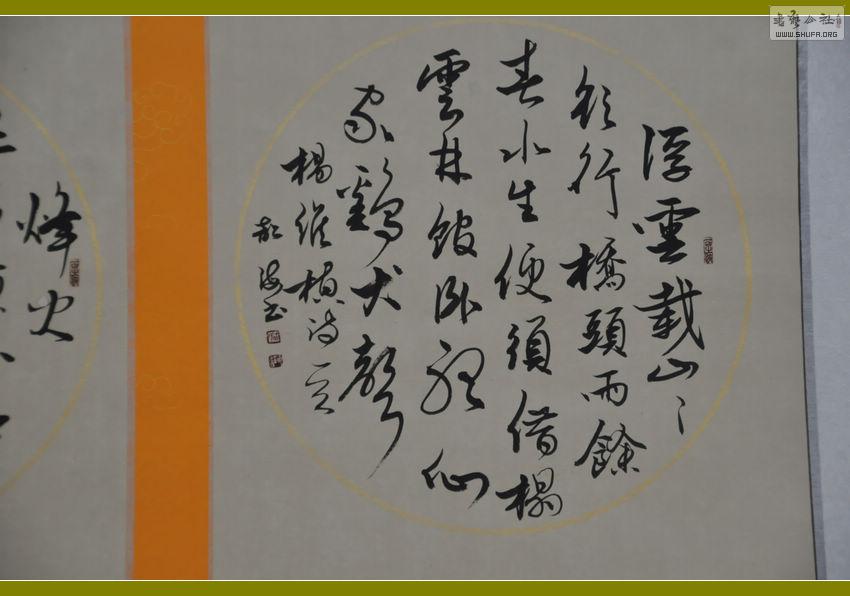 書藝公社
WWW.SHUFA.ORG
浮雲載山〻
欲行橋頭雨餘
春水生便須借榻
雲林館臥聽仙
家鷄犬聲
楊維楨詩一首
海书
烽火